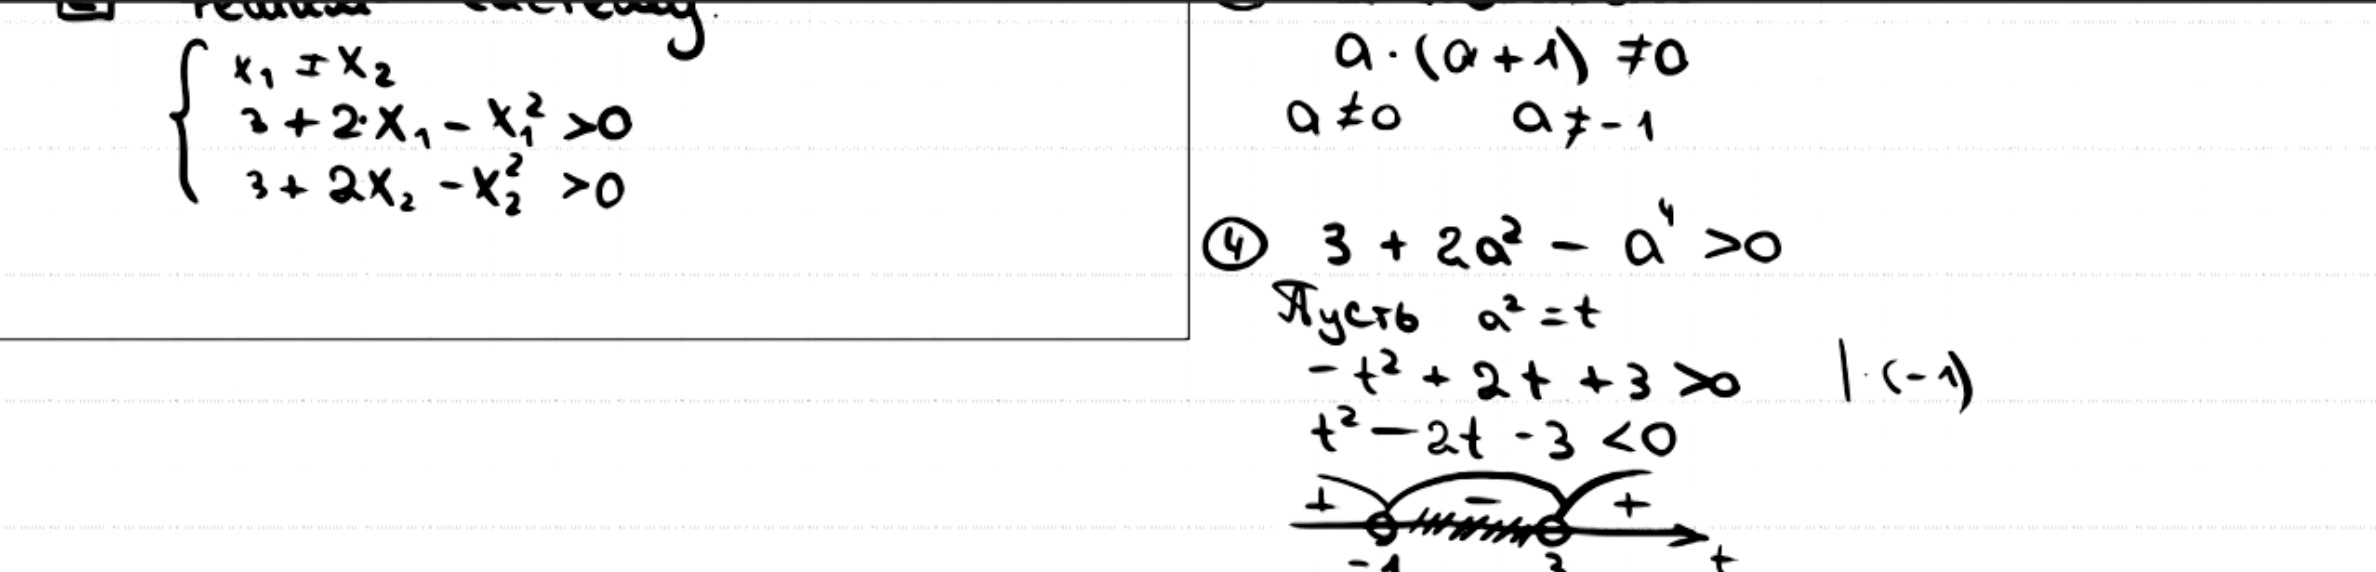 решим систему.
x₁ ≠ x₂
3 + 2·x₁ − x₁² >0
3 + 2x₂ − x₂² >0
a · (a + 1) ≠0
a ≠0 a ≠ −1
④ 3 + 2a² − a⁴ >0
Пусть a² = t
−t² + 2t + 3 >0 | · (−1)
t² − 2t − 3 <0
+ − +
−1 3 t